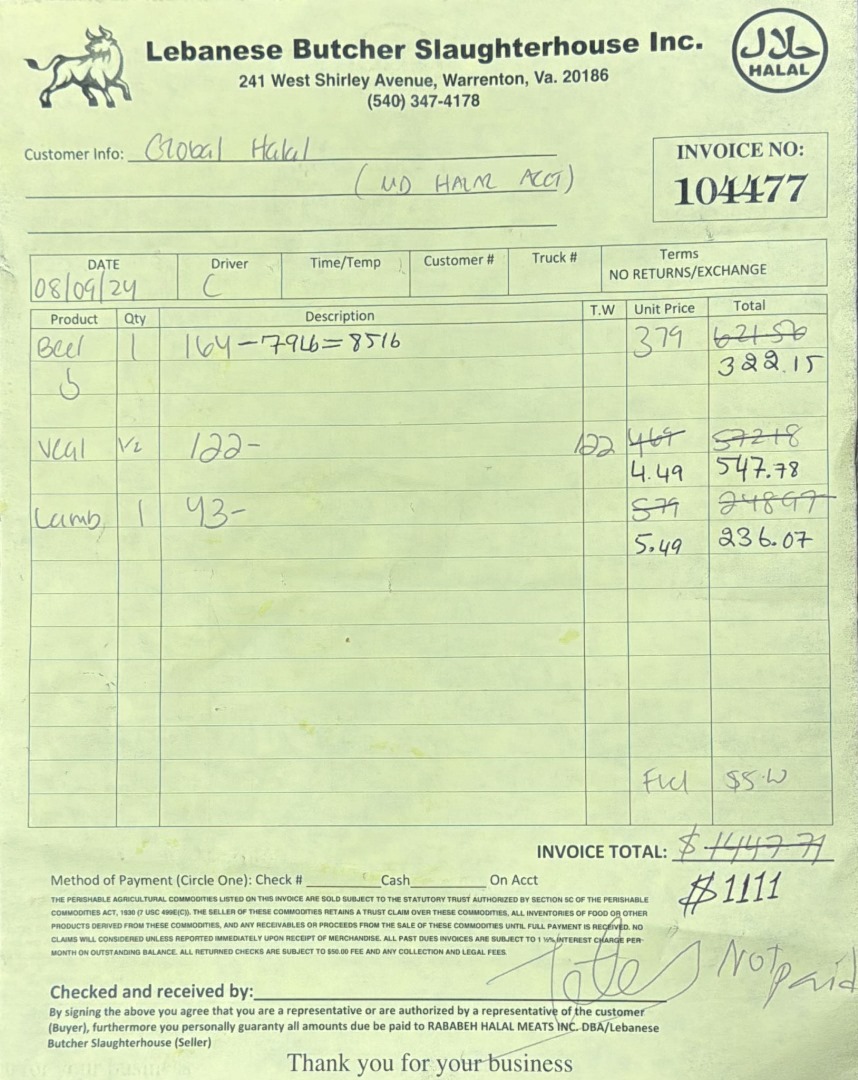 Lebanese Butcher Slaughterhouse Inc.
241 West Shirley Avenue, Warrenton, Va. 20186
(540) 347-4178
حلال
HALAL
Customer Info: Global Halal
(MD HALAL ACCT)
INVOICE NO:
104477
DATE Driver Time/Temp Customer # Truck # Terms
08/09/24 C NO RETURNS/EXCHANGE
Product Qty Description T.W Unit Price Total
Beef 1 164-79Lb=85lb 379 621.56
322.15
Veal 1/2 122- 122 469 57218
4.49 547.78
Lamb 1 43- 579 24897
5.49 236.07
Fuel $5.00
INVOICE TOTAL: $1447.71
$1111
Method of Payment (Circle One): Check # Cash On Acct
THE PERISHABLE AGRICULTURAL COMMODITIES LISTED ON THIS INVOICE ARE SOLD SUBJECT TO THE STATUTORY TRUST AUTHORIZED BY SECTION 5C OF THE PERISHABLE
COMMODITIES ACT, 1930 (7 USC 499E(C)). THE SELLER OF THESE COMMODITIES RETAINS A TRUST CLAIM OVER THESE COMMODITIES, ALL INVENTORIES OF FOOD OR OTHER
PRODUCTS DERIVED FROM THESE COMMODITIES, AND ANY RECEIVABLES OR PROCEEDS FROM THE SALE OF THESE COMMODITIES UNTIL FULL PAYMENT IS RECEIVED. NO
CLAIMS WILL CONSIDERED UNLESS REPORTED IMMEDIATELY UPON RECEIPT OF MERCHANDISE. ALL PAST DUES INVOICES ARE SUBJECT TO 1 ½% INTEREST CHARGE PER
MONTH ON OUTSTANDING BALANCE. ALL RETURNED CHECKS ARE SUBJECT TO $50.00 FEE AND ANY COLLECTION AND LEGAL FEES.
Not paid
Checked and received by:
By signing the above you agree that you are a representative or are authorized by a representative of the customer
(Buyer), furthermore you personally guaranty all amounts due be paid to RABABEH HALAL MEATS INC. DBA/Lebanese
Butcher Slaughterhouse (Seller)
Thank you for your business